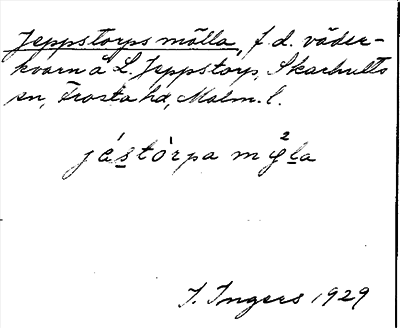 Jeppstorps mölla, f.d. väder-
kvarn å L. Jeppstorp, Skarhults
sn, Frosta hd, Malm. l.
jástòrpa m
I. Ingers 1929